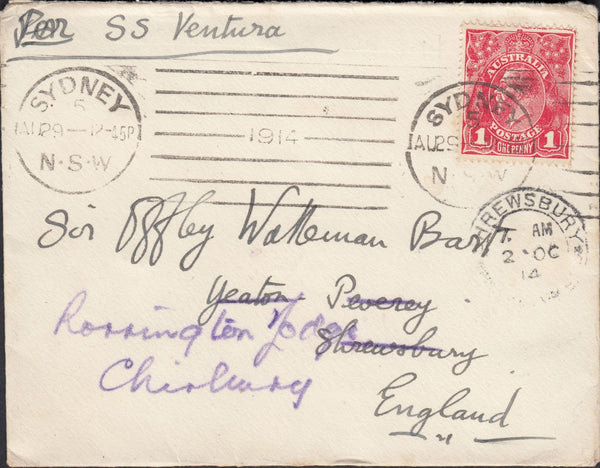 Per SS Ventura
SYDNEY
5
AU29—12·45P
N·S·W
1914
AUSTRALIA
1 POSTAGE 1
ONE PENNY
SYDNEY
AU29
N W
SHREWSBURY
AM
2 · OC
14
Sir Offley Wakeman Bart.
Yeaton Peverey
Rorrington Lodge
Shrewsbury
Chirbury
England